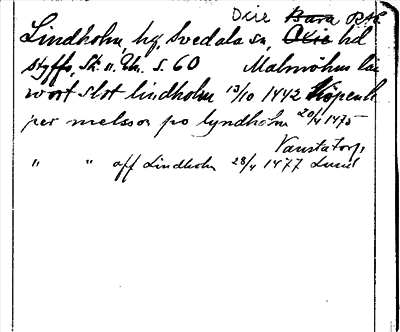 Oxie Bara Rth
Lindholm, hg, Svedala sn, Oxie hd
Styffe, Sk. u. Un. s. 60 Malmöhus län
wort slot lindholm 13/10 1442 Köpenh
per melsson po lyndholm 20/4 1475
Vanstatorp,
" " aff Lindholm 28/4 1477 Lund